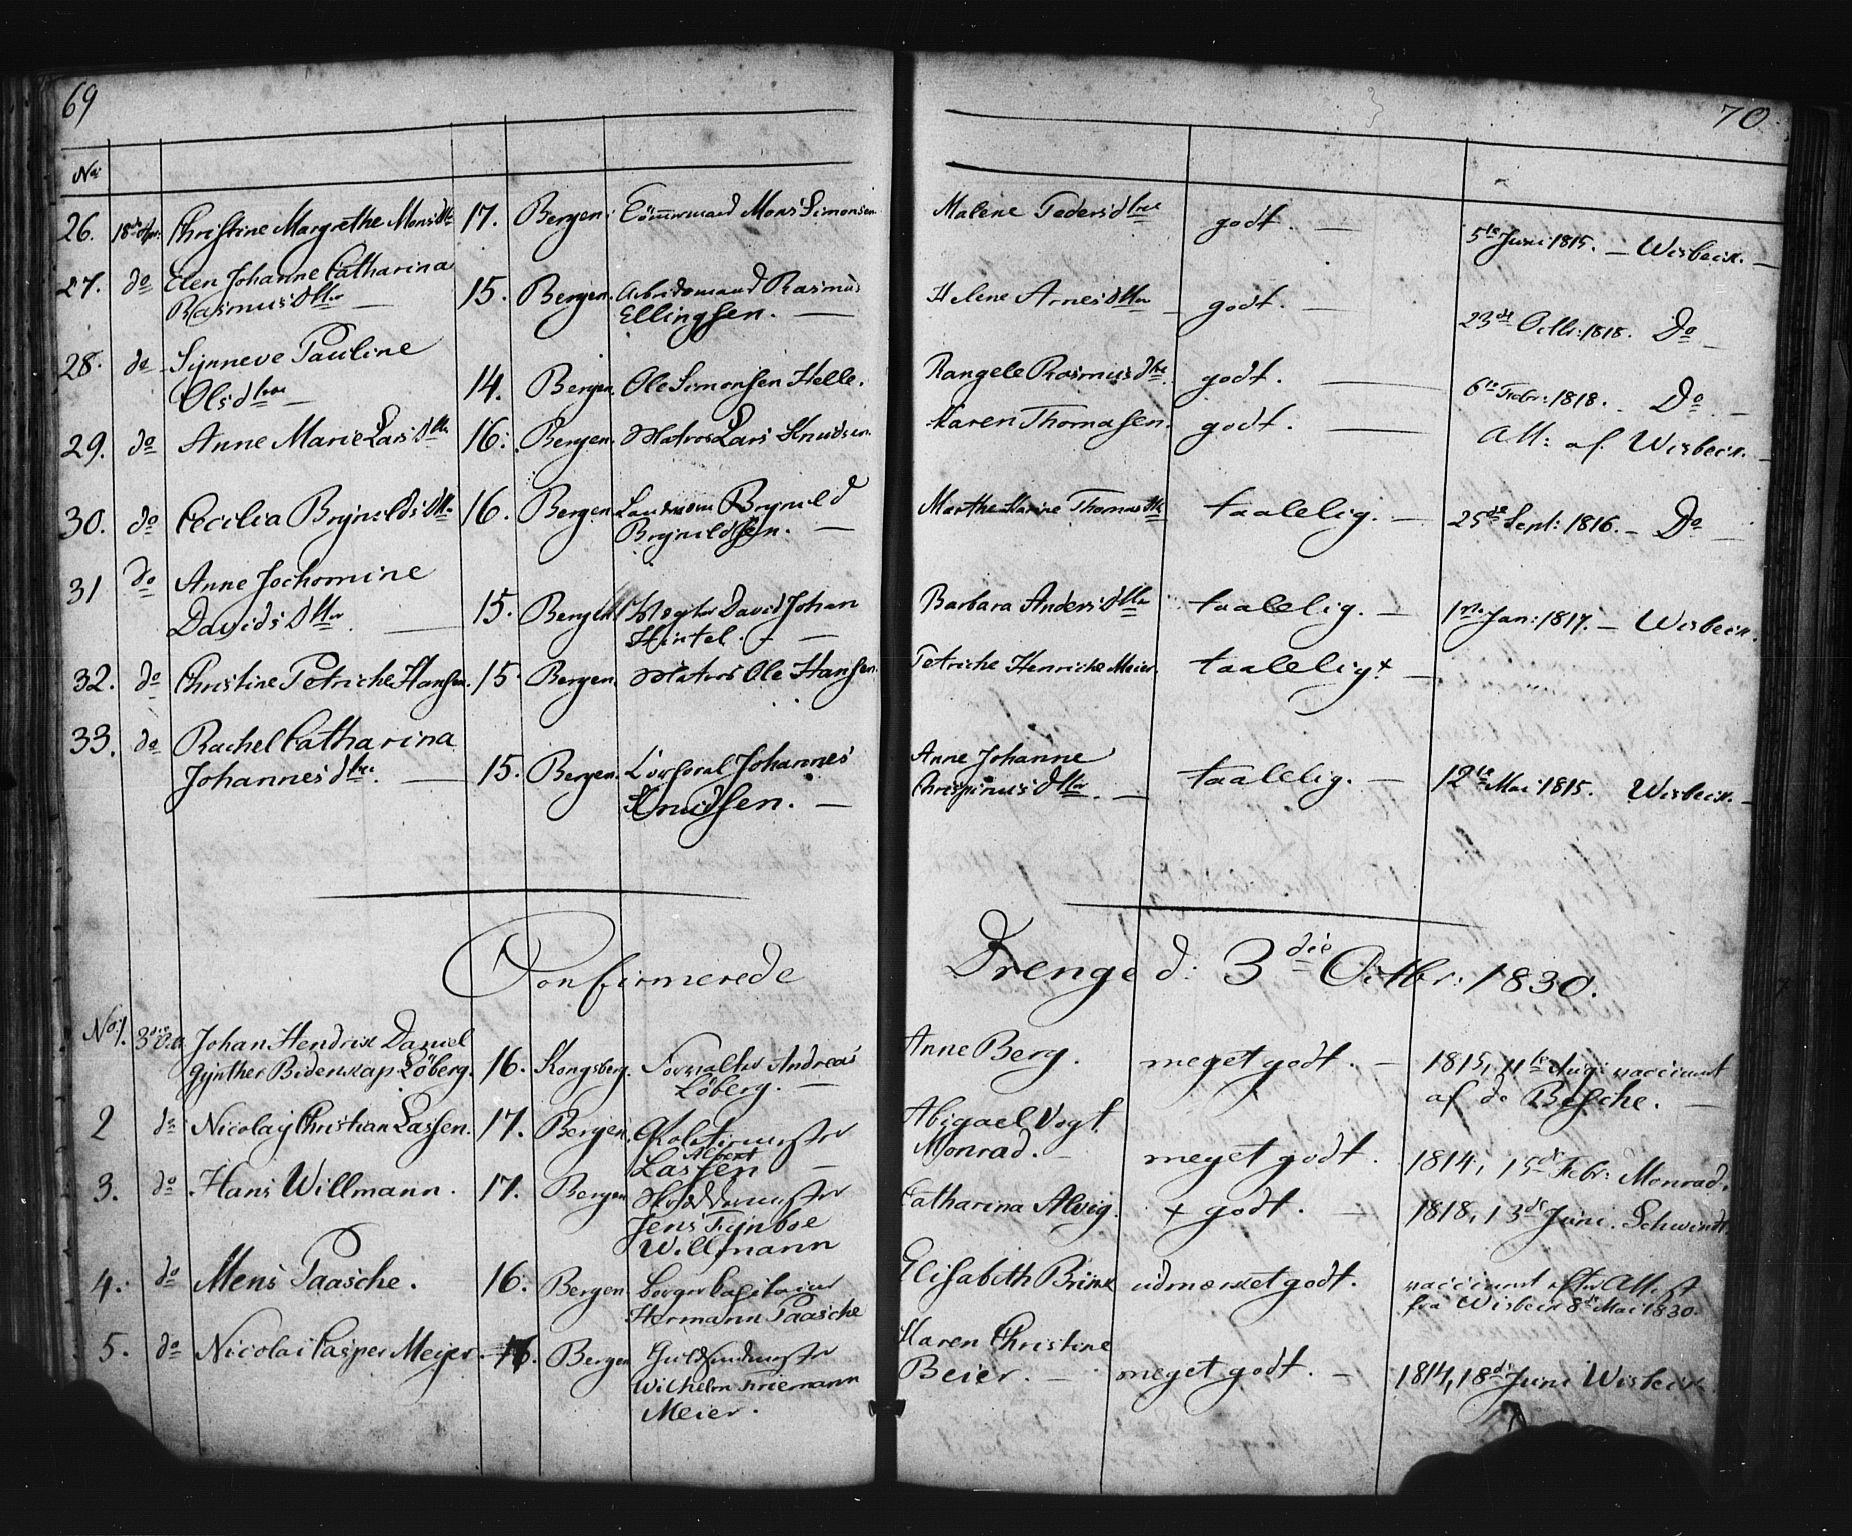 69
70
No:
26. 18de Apr: Christine Margrethe Monsdtr 17. Bergen. Tömmermand Mons Simonsen Malene Pedersdtr godt. — 5te Juni 1815. — Wisbech. —
27. do Elen Johanne Catharina
Rasmusdtr — 15. Bergen. Arbeidsmand Rasmus
Ellingsen. — Helene Arnesdtr godt. — 23de Octbr: 1818. Do —
28. do Synneve Pauline
Olsdtr — 14. Bergen. Ole Simonsen Helle. Rangele Rasmusdtr godt. — 6te Febr: 1818. Do —
29. do Anne Marie Larsdtr 16. Bergen. Matros Lars Knudsen Karen Thomasen. godt. — Att: af Wisbech. —
30. do Cecilia Brynildsdtr 16. Bergen Brynild
Brynildsen. — Marthe Marine Thomasdtr taalelig. — 25de Sept: 1816. — Do —
31 do Anne Jochomine
Davidsdtr — 15. Bergen David Johan
Hintel. — Barbara Andersdtr taalelig. — 1ste Jan: 1817. — Wisbech.
32. do Christine Petricke Hansen. 15 Bergen. Matros Ole Hansen. Petriche Henriche Meier. taalelig + —
33. do Rachel Catharina
Johannesdtr. — 15. Bergen. Corporal Johannes
Knudsen. — Anne Johanne
Chrispinusdtr. — taalelig. — 12te Mai 1815. Wisbech. —
Confirmerede Drenge d: 3die Octbr: 1830.
No 1. 3die Oct. Johan Hendrik Daniel
Gynther Bidenkap Löberg. 16. Kongsberg. Forvalter Andreas
Löberg. — Anne Berg. meget godt. — 1815, 11te Aug: vaccineret
af de Besche. —
2 do Nicolay Christian Lassen. 17. Bergen.
Albert
Lassen — Abigael Vogt
Monrad. — meget godt. 1814, 15de Febr: Monrad.
3. do Hans Willmann. 17. Bergen
Jens Fynboe
Willmann Catharina Alvig. + godt. — 1818, 13de Juni. Schwindt.
4. do Mens Paasche. 16. Bergen Borgercapitain
Hermann Paasche Elisabeth Brink udmærket godt. vaccineret efter Attest
fra Wisbech 8de Mai 1830.
5. do Nicolai Casper Meier. 16. Bergen Guldsmedmester
Wilhelm Friemann
Meier. Karen Christine
Beier. — meget godt. — 1814, 18de Juni Wisbech